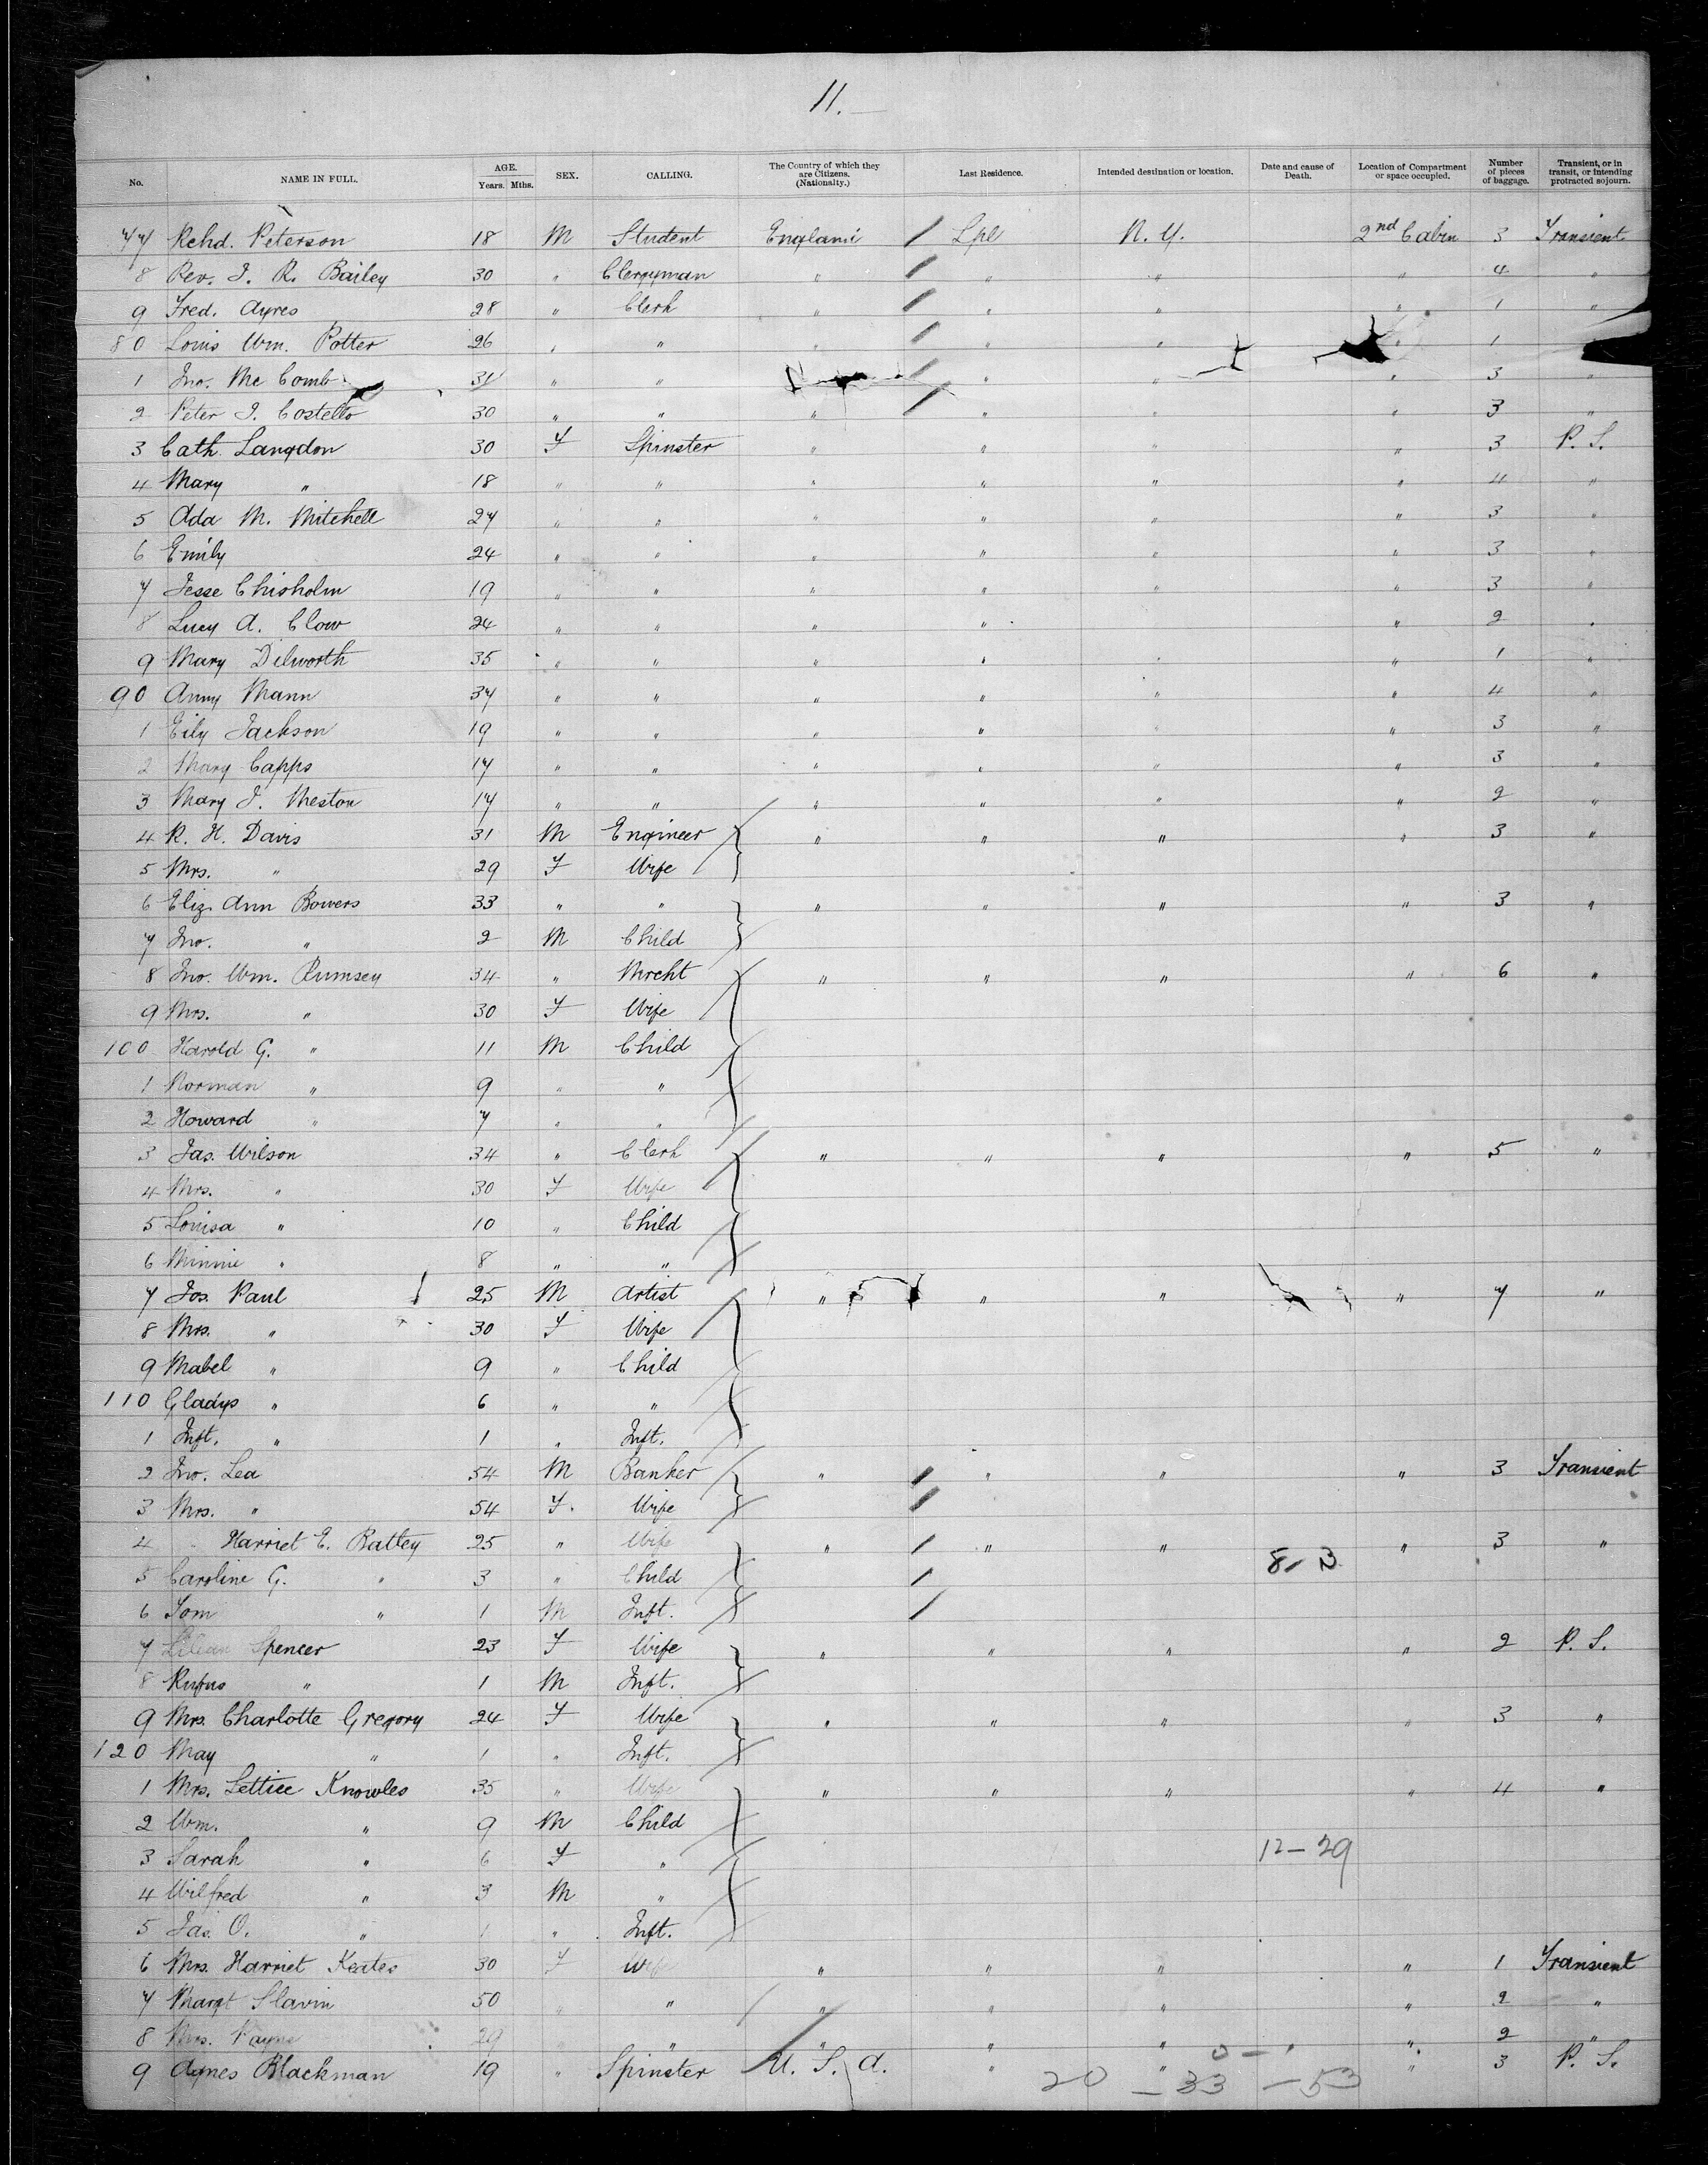 11.
No. NAME IN FULL. AGE. Years. Mths. SEX. CALLING. The Country of which they are Citizens. (Nationality.) Last Residence. Intended destination or location. Date and cause of Death. Location of Compartment or space occupied. Number of pieces of baggage. Transient, or in transit, or intending protracted sojourn.
77 Rchd. Peterson 18 M Student England / Lpl N. Y. 2nd Cabin 3 Transient
8 Rev. J. R. Bailey 30 " Clergyman " / " " " 4 "
9 Fred. Ayres 28 " Clerk " / " " " 1 "
80 Louis Wm. Potter 26 " " " / " " " 1
1 Jno. Mc Comb 31 " " / " " " 3 "
2 Peter J. Costello 30 " " " / " " " 3 "
3 Cath. Langdon 30 F Spinster " " " " 3 P. S.
4 Mary " 18 " " " " " " 4 "
5 Ada M. Mitchell 27 " " " " " " 3 "
6 Emily 24 " " " " " " 3 "
7 Jesse Chisholm 19 " " " " " " 3 "
8 Lucy A. Clow 24 " " " " " 2 "
9 Mary Dilworth 35 " " " " " " 1 "
90 Anny Mann 37 " " " " " " 4 "
1 Eily Jackson 19 " " " " " " 3 "
2 Mary Capps 17 " " " " " " 3 "
3 Mary J. Meston 17 " " " " " " 2 "
4 R. H. Davis 31 M Engineer " " " " 3 "
5 Mrs. " 29 F Wife
6 Eliz. Ann Bowers 33 " " " " " " 3 "
7 Jno. " 2 M Child
8 Jno. Wm. Rumsey 34 " Mrcht " " " " 6 "
9 Mrs. " 30 F Wife
100 Harold G. " 11 M Child
1 Norman " 9 " "
2 Howard " 7 " "
3 Jas. Wilson 34 " Clerk " " " " 5 "
4 Mrs. " 30 F Wife
5 Louisa " 10 " Child
6 Minnie " 8 " "
7 Jos. Paul 25 M Artist " " " " 7 "
8 Mrs. " 30 F Wife
9 Mabel " 9 " Child
110 Gladys " 6 " "
1 Inft. " 1 " Inft.
2 Jno. Lea 54 M Banker " / " " " 3 Transient
3 Mrs. " 54 F. Wife /
4 " Harriet E. Battey 25 " Wife " / " " " 3 "
5 Caroline G. " 3 " Child /
6 Tom " 1 M Inft. /
7 Lilian Spencer 23 F Wife " " " " 2 P. S.
8 Rufus " 1 M Inft.
9 Mrs. Charlotte Gregory 24 F Wife " " " " 3 "
120 May " 1 " Inft.
1 Mrs. Lettice Knowles 35 " Wife " " " " 4 "
2 Wm. " 9 M Child
3 Sarah " 6 F " 12-29
4 Wilfred " 3 M "
5 Jas. O. " 1 " Inft.
6 Mrs. Harriet Keates 30 F Wife " " " " 1 Transient
7 Margt Slavin 50 " " " " " " 2 "
8 Mrs. Payne 29 " " " " " 2 "
9 Agnes Blackman 19 " Spinster U. S. A. " " " 3 P. S.
20 - 33 - 53